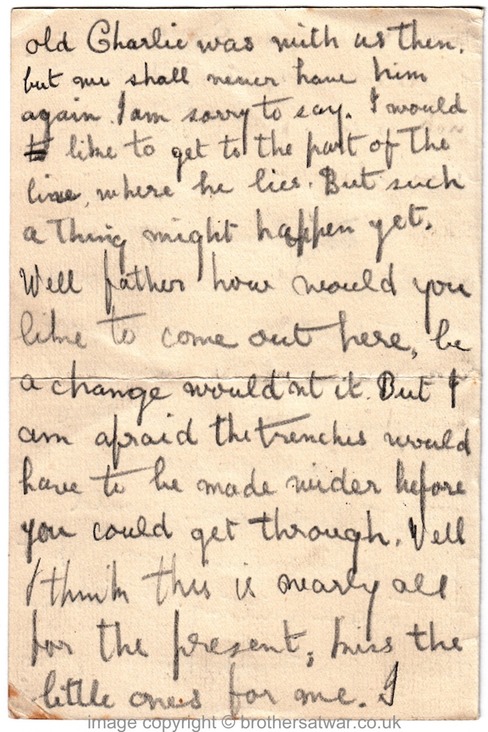 old Charlie was with us then.
but we shall never have him
again. I am sorry to say. I would
like to get to the part of the
line, where he lies. But such
a thing might happen yet.
Well father how would you
like to come out here, be
a change would'nt it. But I
am afraid the trenches would
have to be made wider before
you could get through. Well
I think this is nearly all
for the present, kiss the
little ones for me. I
image copyright © brothersatwar.co.uk